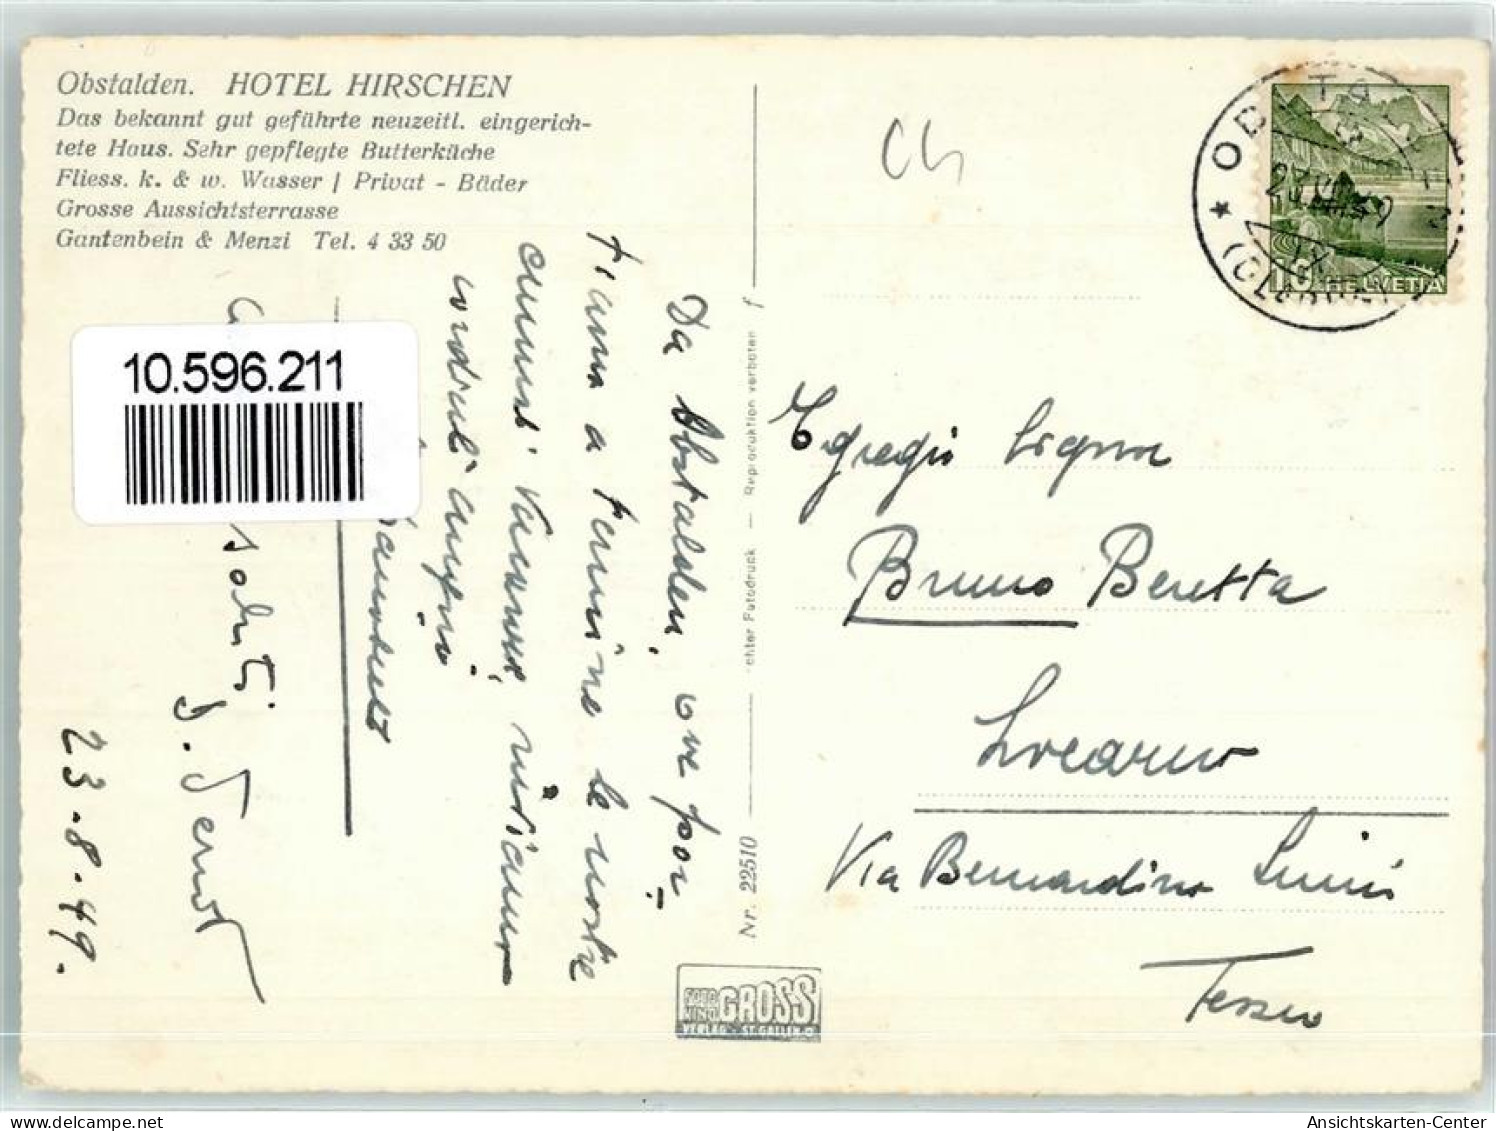 Obstalden. HOTEL HIRSCHEN
Das bekannt gut geführte neuzeitl. eingerich-
tete Haus. Sehr gepflegte Butterküche
Fliess. k. & w. Wasser / Privat - Bäder
Grosse Aussichtsterrasse
Gantenbein & Menzi Tel. 4 33 50
10.596.211
Da Obstalden, ove por-
tiamo a termine le nostre
inviamo
cordiali auguri
23-8-49.
Nr. 22510
chter Fotodruck — Reproduktion verboten
FOTO
KINO
GROSS
VERLAG ST. GALLEN
Ch
HELVETIA
10
Egregio Signor
Bruno Beretta
Locarno
Via Bernardino Luini
Tessin
10596211
Ansichtskarten-Center